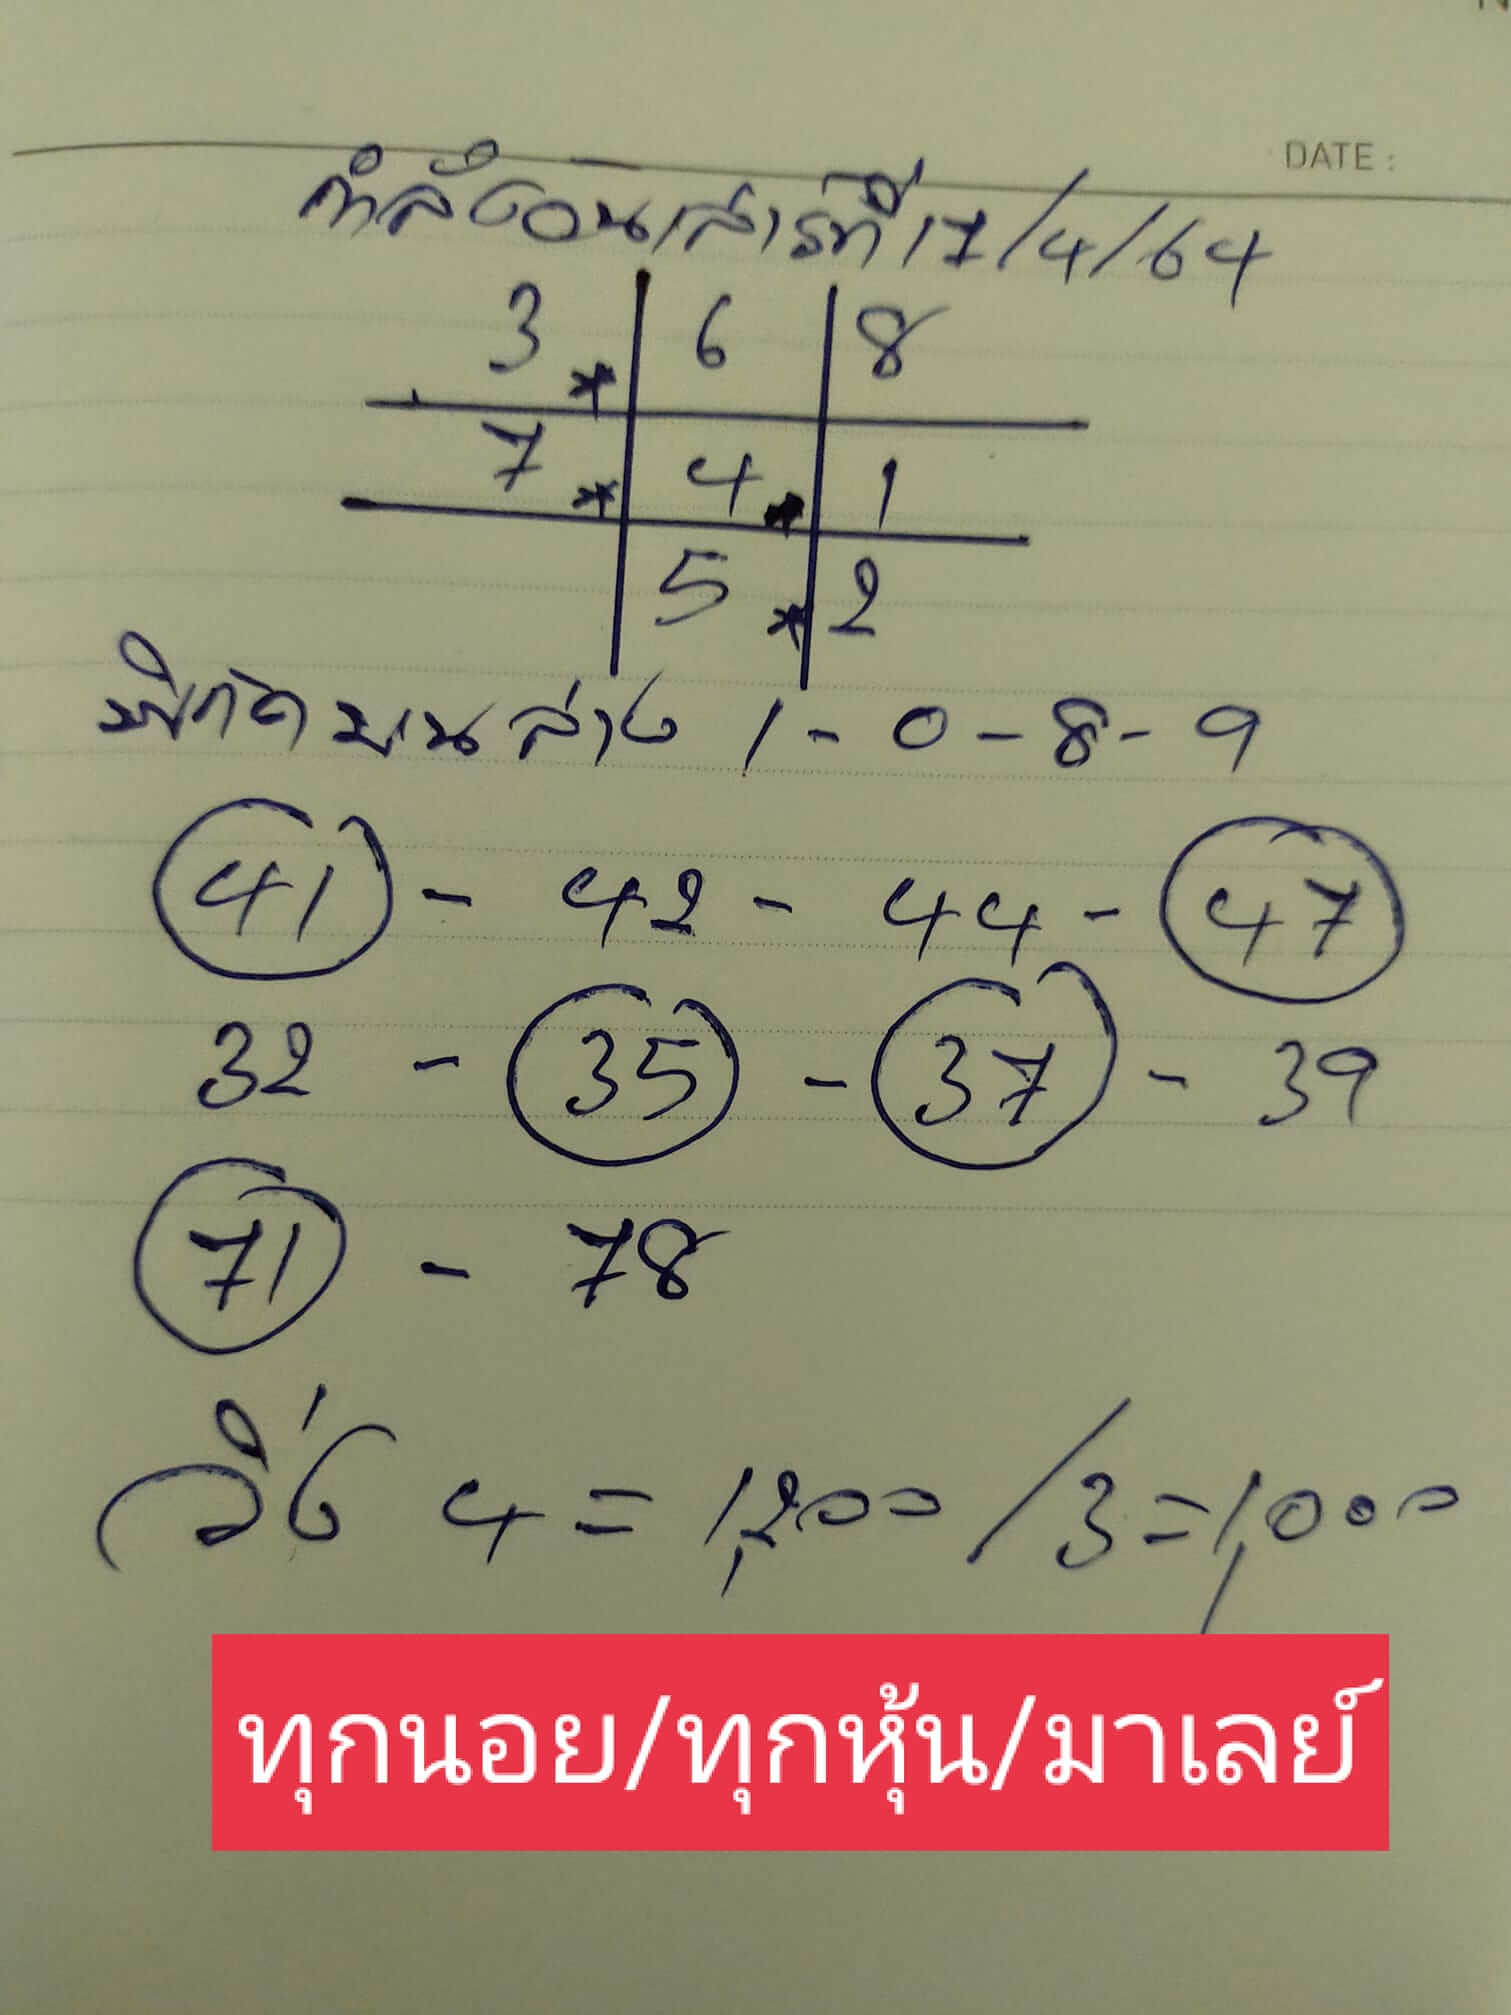 DATE :
กำลังวันเสาร์ที่ 17/4/64
3 * 6 8
7 * 4 * 1
5 * 2
พิกัดบนล่าง 1 - 0 - 8 - 9
41 - 42 - 44 - 47
32 - 35 - 37 - 39
71 - 78
วิ่ง 4 = 1,200 / 3 = 1,000
ทุกนอย/ทุกหุ้น/มาเลย์